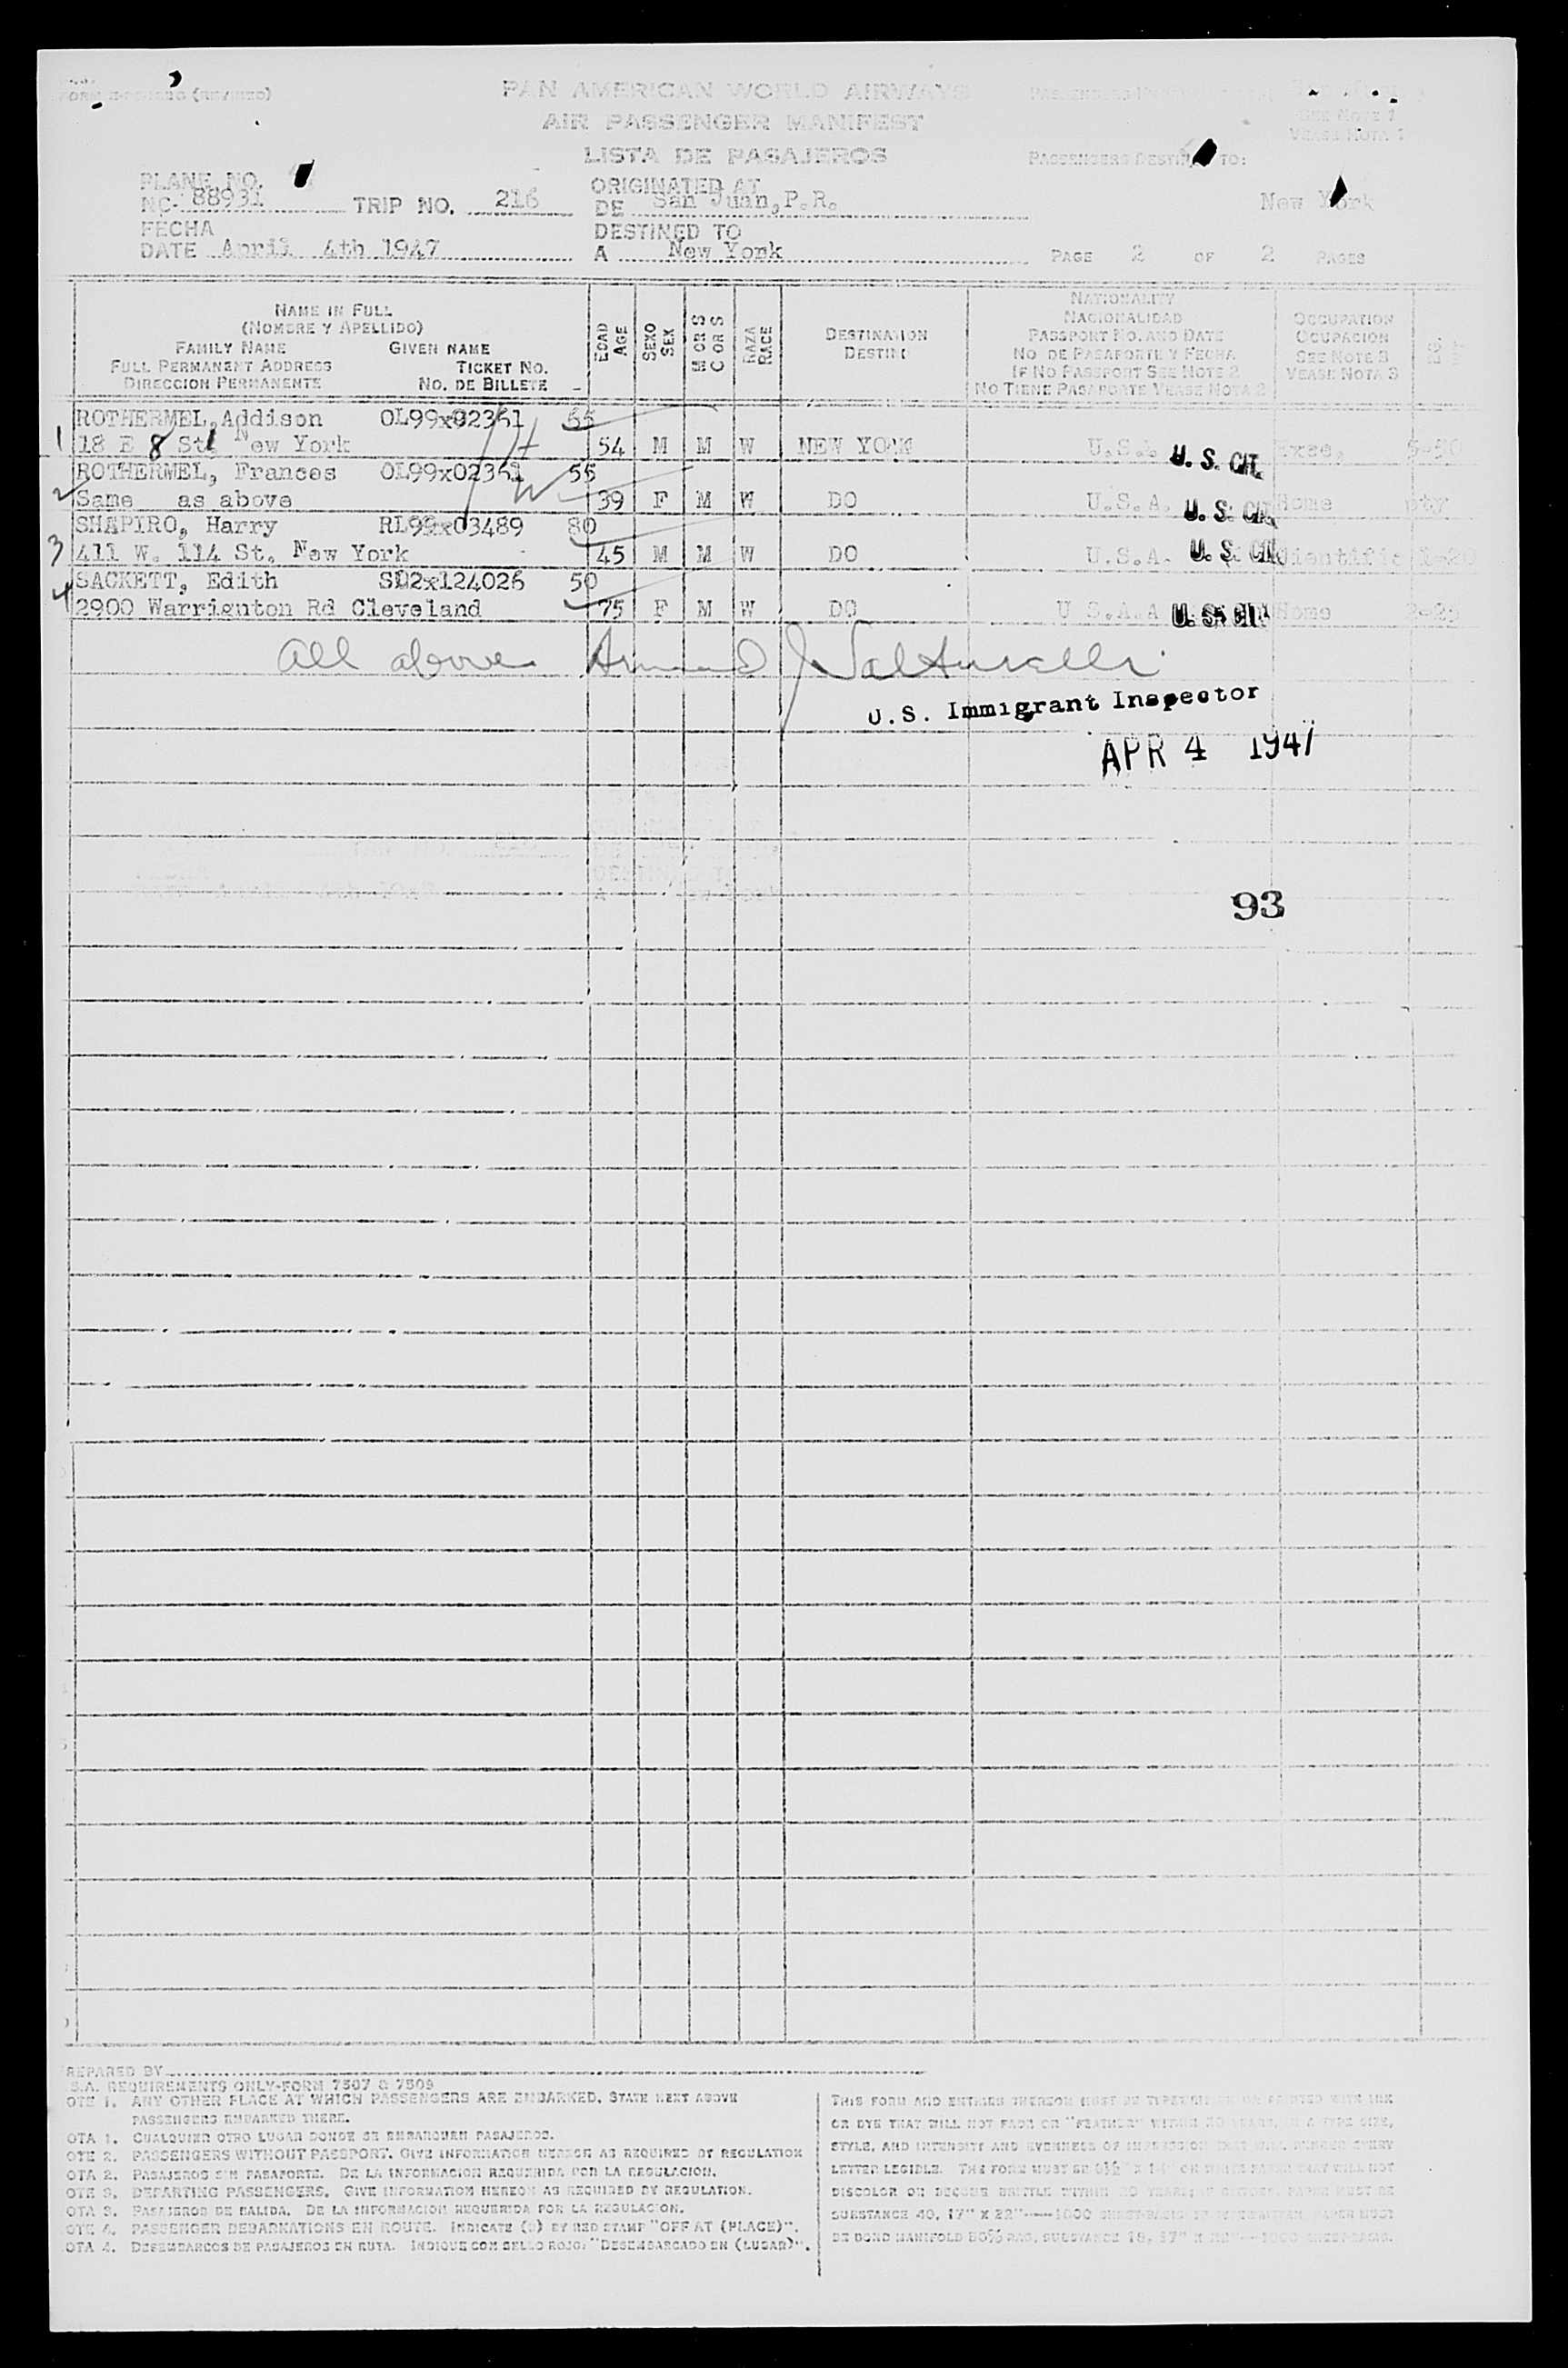 PAN AMERICAN WORLD AIRWAYS
AIR PASSENGER MANIFEST
LISTA DE PASAJEROS
PASSENGERS DESTINED TO:
SEE NOTE 1
VEASE NOTA 1
PLANE NO.
NC. 88931 TRIP NO. 216
ORIGINATED AT
DE San Juan,P.R.
New York
FECHA
DATE April 4th 1947
DESTINED TO
A New York
PAGE 2 OF 2 PAGES
NAME IN FULL
(NOMBRE Y APELLIDO)
FAMILY NAME GIVEN NAME
FULL PERMANENT ADDRESS TICKET NO.
DIRECCION PERMANENTE NO. DE BILLETE
EDAD
AGE
SEXO
SEX
M OR S
C OR S
RAZA
RACE
DESTINATION
DESTINO
NATIONALITY
NACIONALIDAD
PASSPORT NO. AND DATE
NO DE PASAPORTE Y FECHA
IF NO PASSPORT SEE NOTE 2
NO TIENE PASAPORTE VEASE NOTA 2
OCCUPATION
OCUPACION
SEE NOTE 3
VEASE NOTA 3
ROTHERMEL,Addison OL99x02361 55
1 18 E 8 St. New York 54 M M W NEW YORK U.S.A. U. S. CIT. Exec.
ROTHERMEL, Frances OL99x02361 55
2 Same as above 39 F M W DO U.S.A. U. S. CIT. Home
SHAPIRO, Harry RL99x03489 80
3 411 W. 114 St. New York 45 M M W DO U.S.A. U. S. CIT.
SACKETT, Edith SD2x124026 50
4 2900 Warrignton Rd Cleveland 75 F M W DO U S.A.A U. S. CIT. Home
All above
U.S. Immigrant Inspector
APR 4 1947
93
REPARED BY
S.A. REQUIREMENTS ONLY-FORM 7507 & 7509
OTE 1. ANY OTHER PLACE AT WHICH PASSENGERS ARE EMBARKED, STATE NEXT ABOVE
PASSENGERS EMBARKED THERE.
OTA 1. CUALQUIER OTRO LUGAR DONDE SE EMBARQUEN PASAJEROS.
OTE 2. PASSENGERS WITHOUT PASSPORT. GIVE INFORMATION HEREON AS REQUIRED BY REGULATION
OTA 2. PASAJEROS SIN PASAPORTE. DE LA INFORMACION REQUERIDA POR LA REGULACION.
OTE 3. DEPARTING PASSENGERS. GIVE INFORMATION HEREON AS REQUIRED BY REGULATION.
OTA 3. PASAJEROS DE SALIDA. DE LA INFORMACION REQUERIDA POR LA REGULACION.
OTE 4. PASSENGER DEBARKATIONS EN ROUTE. INDICATE (S) BY RED STAMP "OFF AT (PLACE)".
OTA 4. DESEMBARCOS DE PASAJEROS EN RUTA. INDIQUE CON SELLO ROJO: "DESEMBARCADO EN (LUGAR)".
THIS FORM AND ENTRIES THEREON MUST BE TYPEWRITTEN OR PRINTED WITH INK
OR DYE THAT WILL NOT FADE OR "FEATHER" WITHIN 20 YEARS, IN A TYPE SIZE,
STYLE, AND INTENSITY AND EVENNESS OF IMPRESSION THAT WILL RENDER EVERY
LETTER LEGIBLE. THE FORM MUST BE
DISCOLOR OR BECOME BRITTLE WITHIN 20 YEARS; PAPER MUST BE
SUBSTANCE 40, 17" X 22"—1000 PAPER MUST
BE BOND MANIFOLD 50% RAG, SUBSTANCE 18, 17" X 22"—1000